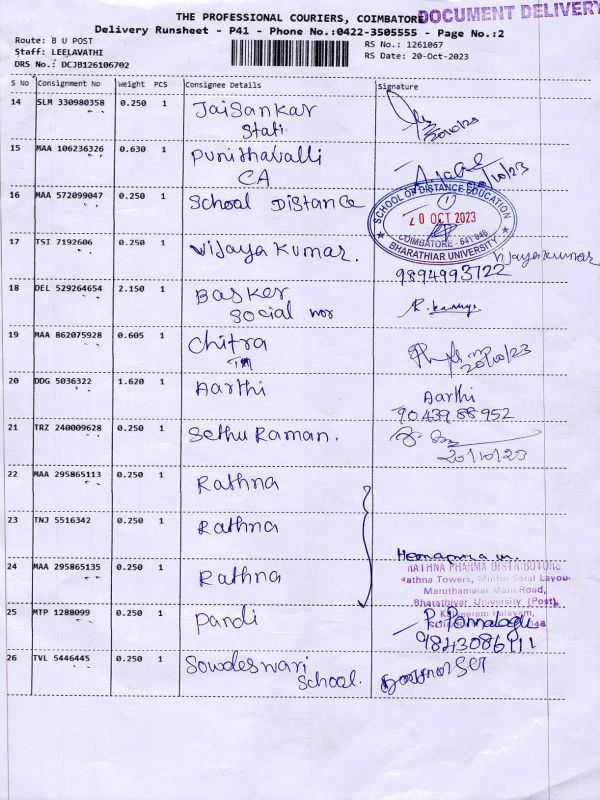 THE PROFESSIONAL COURIERS, COIMBATORE
DOCUMENT DELIVERY
Delivery Runsheet - P41 - Phone No.:0422-3505555 - Page No.:2
Route: B U POST
Staff: LEELAVATHI
DRS No.: DCJB126106702
RS No.: 1261067
RS Date: 20-Oct-2023
S No Consignment No Weight PCS Consignee Details Signature
14 SLM 330980358 0.250 1 Jaisankar
Stati
20/10/23
15 MAA 106236326 0.630 1 Punithavalli
CA
20/10/23
16 MAA 572099047 0.250 1 School Distance
SCHOOL OF DISTANCE EDUCATION
20 OCT 2023
COIMBATORE - 641 046
BHARATHIAR UNIVERSITY
17 TSI 7192606 0.250 1 Vijaya Kumar.
Vijayakumar
9894993722
18 DEL 529264654 2.150 1 Basker
Social wor
19 MAA 862075928 0.605 1 Chitra
20/10/23
20 DDG 5036322 1.620 1 Aarthi
Aarthi
90439 88 952
21 TRZ 240009628 0.250 1 Sethu Raman.
20/10/23
22 MAA 295865113 0.250 1 Rathna
23 TNJ 5516342 0.250 1 Rathna
24 MAA 295865135 0.250 1 Rathna
RATHNA PHARMA DISTRIBUTORS
Rathna Towers,
Maruthamalai Main Road,
Bharathiyar University (Post),
25 MTP 1288099 0.250 1 Pandi
9843086111
26 TVL 5446445 0.250 1 Sowdeswari
School.